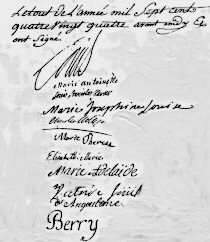 Le tout de l'année mil Sept cents
quatre vingt quatre avant midy Et
ont Signé.
Louis
Marie Antoinette
Louis Stanislas Xavier
Marie Josephine Louise
Charles
Marie Therese
Elisabeth Marie
Marie Adelaide
Victoire Louise
d'angouleme
Berry